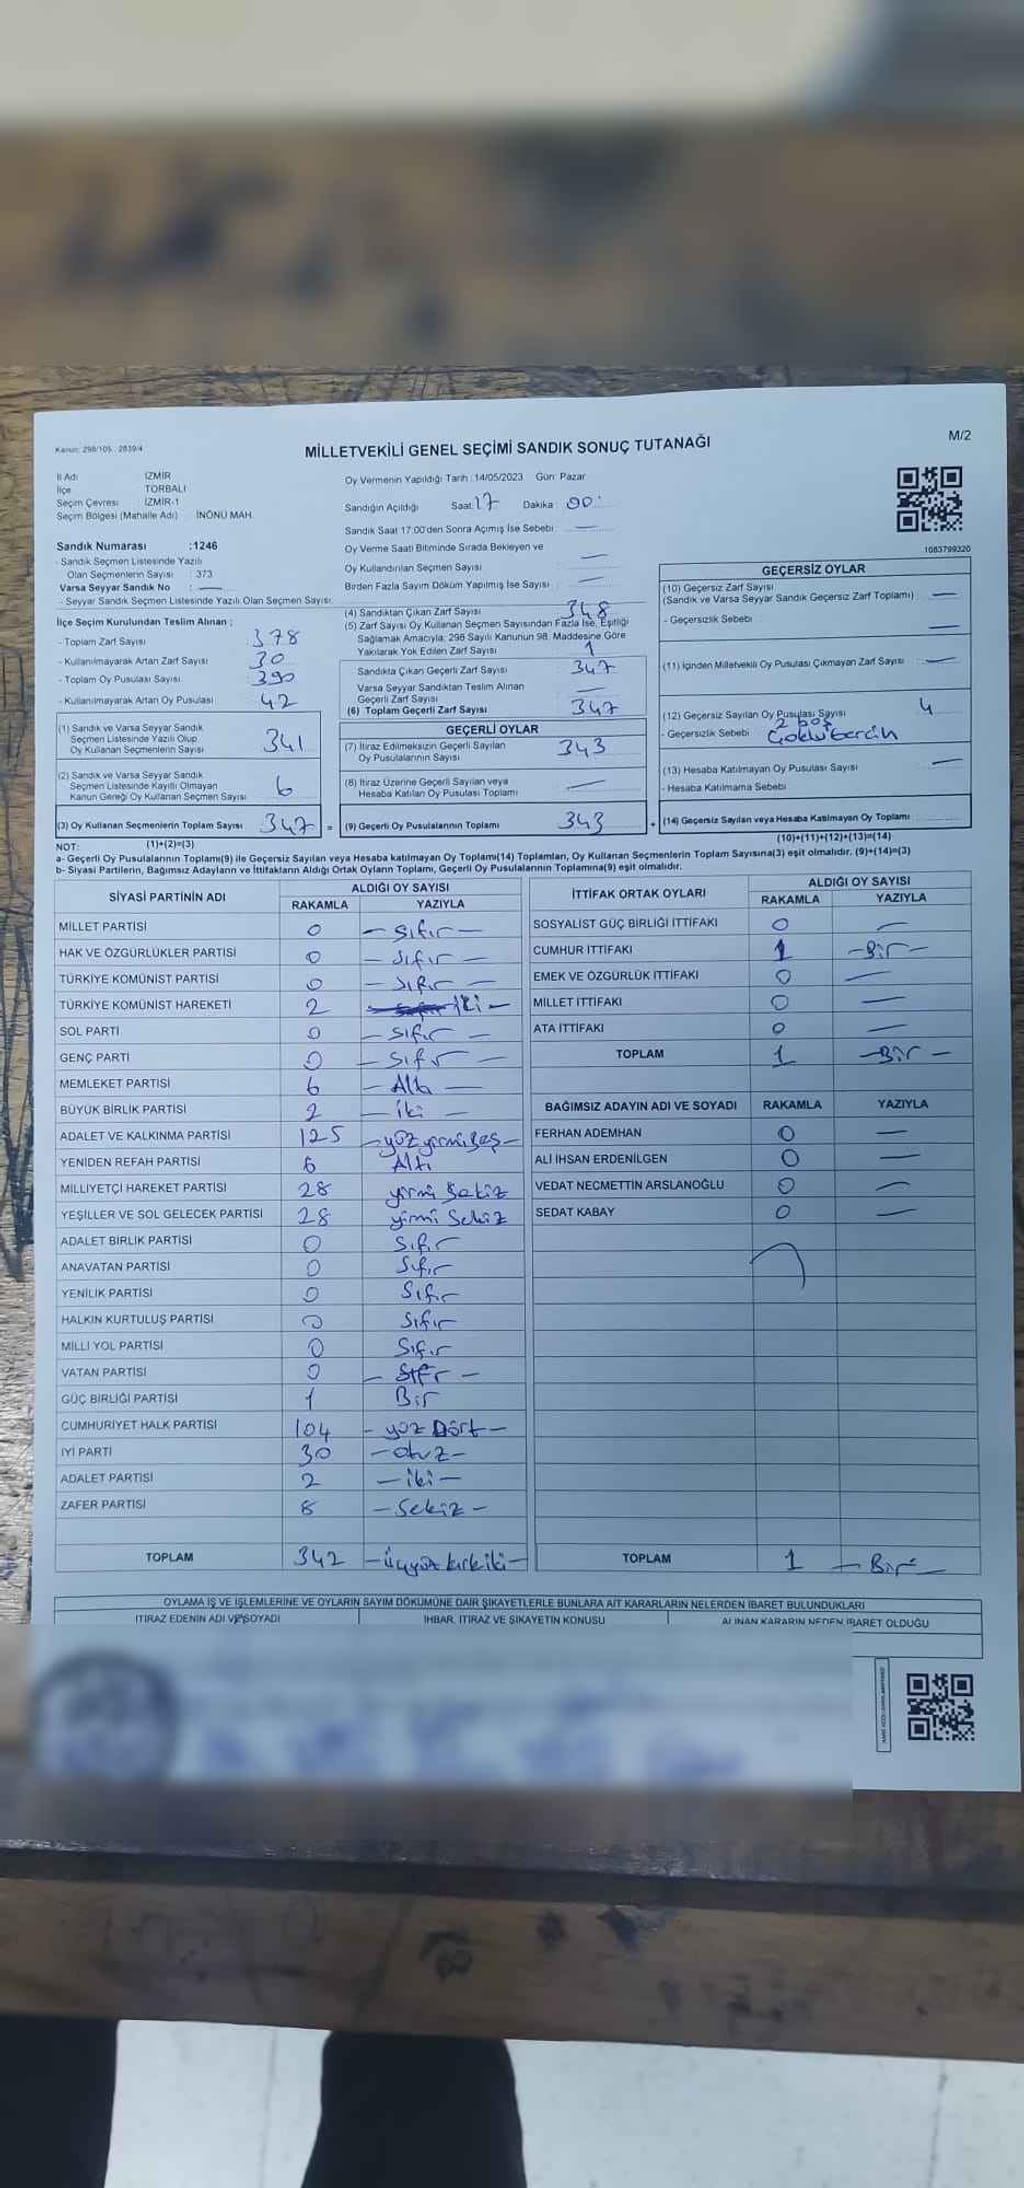 Kanun: 298/105 - 2839/4
MİLLETVEKİLİ GENEL SEÇİMİ SANDIK SONUÇ TUTANAĞI
M/2
İl Adı İZMİR
İlçe TORBALI
Seçim Çevresi İZMİR-1
Seçim Bölgesi (Mahalle Adı) İNÖNÜ MAH.
Sandık Numarası :1246
- Sandık Seçmen Listesinde Yazılı
Olan Seçmenlerin Sayısı : 373
Varsa Seyyar Sandık No : —
- Seyyar Sandık Seçmen Listesinde Yazılı Olan Seçmen Sayısı:
İlçe Seçim Kurulundan Teslim Alınan ;
- Toplam Zarf Sayısı 378
- Kullanılmayarak Artan Zarf Sayısı 30
- Toplam Oy Pusulası Sayısı 390
- Kullanılmayarak Artan Oy Pusulası 42
(1) Sandık ve Varsa Seyyar Sandık
Seçmen Listesinde Yazılı Olup
Oy Kullanan Seçmenlerin Sayısı 341
(2) Sandık ve Varsa Seyyar Sandık
Seçmen Listesinde Kayıtlı Olmayan
Kanun Gereği Oy Kullanan Seçmen Sayısı 6
(3) Oy Kullanan Seçmenlerin Toplam Sayısı 347 =
Oy Vermenin Yapıldığı Tarih : 14/05/2023 Gün: Pazar
Sandığın Açıldığı Saat: 17 Dakika: 00
Sandık Saat 17:00'den Sonra Açımış İse Sebebi: —
Oy Verme Saati Bitiminde Sırada Bekleyen ve
Oy Kullandırılan Seçmen Sayısı —
Birden Fazla Sayım Döküm Yapılmış İse Sayısı —
(4) Sandıktan Çıkan Zarf Sayısı 348
(5) Zarf Sayısı Oy Kullanan Seçmen Sayısından Fazla İse, Eşitliği
Sağlamak Amacıyla; 298 Sayılı Kanunun 98. Maddesine Göre
Yakılarak Yok Edilen Zarf Sayısı 1
Sandıkta Çıkan Geçerli Zarf Sayısı 347
Varsa Seyyar Sandıktan Teslim Alınan
Geçerli Zarf Sayısı —
(6) Toplam Geçerli Zarf Sayısı 347
GEÇERLİ OYLAR
(7) İtiraz Edilmeksizin Geçerli Sayılan
Oy Pusulalarının Sayısı 343
(8) İtiraz Üzerine Geçerli Sayılan veya
Hesaba Katılan Oy Pusulası Toplamı —
(9) Geçerli Oy Pusulalarının Toplamı 343 +
1083799320
GEÇERSİZ OYLAR
(10) Geçersiz Zarf Sayısı
(Sandık ve Varsa Seyyar Sandık Geçersiz Zarf Toplamı) : —
- Geçersizlik Sebebi : —
(11) İçinden Milletvekili Oy Pusulası Çıkmayan Zarf Sayısı —
(12) Geçersiz Sayılan Oy Pusulası Sayısı 4
2 boş
- Geçersizlik Sebebi
(13) Hesaba Katılmayan Oy Pusulası Sayısı —
- Hesaba Katılmama Sebebi
(14) Geçersiz Sayılan veya Hesaba Katılmayan Oy Toplamı
NOT: (1)+(2)=(3) (10)+(11)+(12)+(13)=(14)
a- Geçerli Oy Pusulalarının Toplamı(9) ile Geçersiz Sayılan veya Hesaba katılmayan Oy Toplamı(14) Toplamları, Oy Kullanan Seçmenlerin Toplam Sayısına(3) eşit olmalıdır. (9)+(14)=(3)
b- Siyasi Partilerin, Bağımsız Adayların ve İttifakların Aldığı Ortak Oyların Toplamı, Geçerli Oy Pusulalarının Toplamına(9) eşit olmalıdır.
SİYASİ PARTİNİN ADI ALDIĞI OY SAYISI
RAKAMLA YAZIYLA
MİLLET PARTİSİ 0 — Sıfır —
HAK VE ÖZGÜRLÜKLER PARTİSİ 0 — Sıfır —
TÜRKİYE KOMÜNİST PARTİSİ 0 — Sıfır —
TÜRKİYE KOMÜNİST HAREKETİ 2 iki —
SOL PARTİ 0 — Sıfır —
GENÇ PARTİ 0 — Sıfır —
MEMLEKET PARTİSİ 6 — Altı —
BÜYÜK BİRLİK PARTİSİ 2 — iki —
ADALET VE KALKINMA PARTİSİ 125 — yüz yirmi beş —
YENİDEN REFAH PARTİSİ 6 Altı
MİLLİYETÇİ HAREKET PARTİSİ 28 yirmi Sekiz
YEŞİLLER VE SOL GELECEK PARTİSİ 28 yirmi Sekiz
ADALET BİRLİK PARTİSİ 0 Sıfır
ANAVATAN PARTİSİ 0 Sıfır
YENİLİK PARTİSİ 0 Sıfır
HALKIN KURTULUŞ PARTİSİ 0 Sıfır
MİLLİ YOL PARTİSİ 0 Sıfır
VATAN PARTİSİ 0 — Sıfır —
GÜÇ BİRLİĞİ PARTİSİ 1 Bir
CUMHURİYET HALK PARTİSİ 104 — yüz Dört —
İYİ PARTİ 30 — otuz —
ADALET PARTİSİ 2 — iki —
ZAFER PARTİSİ 8 — Sekiz —
TOPLAM 342 — üçyüz kırk iki —
İTTİFAK ORTAK OYLARI ALDIĞI OY SAYISI
RAKAMLA YAZIYLA
SOSYALİST GÜÇ BİRLİĞİ İTTİFAKI 0 —
CUMHUR İTTİFAKI 1 — Bir —
EMEK VE ÖZGÜRLÜK İTTİFAKI 0 —
MİLLET İTTİFAKI 0 —
ATA İTTİFAKI 0 —
TOPLAM 1 — Bir —
BAĞIMSIZ ADAYIN ADI VE SOYADI RAKAMLA YAZIYLA
FERHAN ADEMHAN 0 —
ALİ İHSAN ERDENİLGEN 0 —
VEDAT NECMETTİN ARSLANOĞLU 0 —
SEDAT KABAY 0 —
TOPLAM 1 — Bir —
OYLAMA İŞ VE İŞLEMLERİNE VE OYLARIN SAYIM DÖKÜMÜNE DAİR ŞİKAYETLERLE BUNLARA AİT KARARLARIN NELERDEN İBARET BULUNDUKLARI
İTİRAZ EDENİN ADI VE SOYADI İHBAR, İTİRAZ VE ŞİKAYETİN KONUSU ALINAN KARARIN NEDEN İBARET OLDUĞU